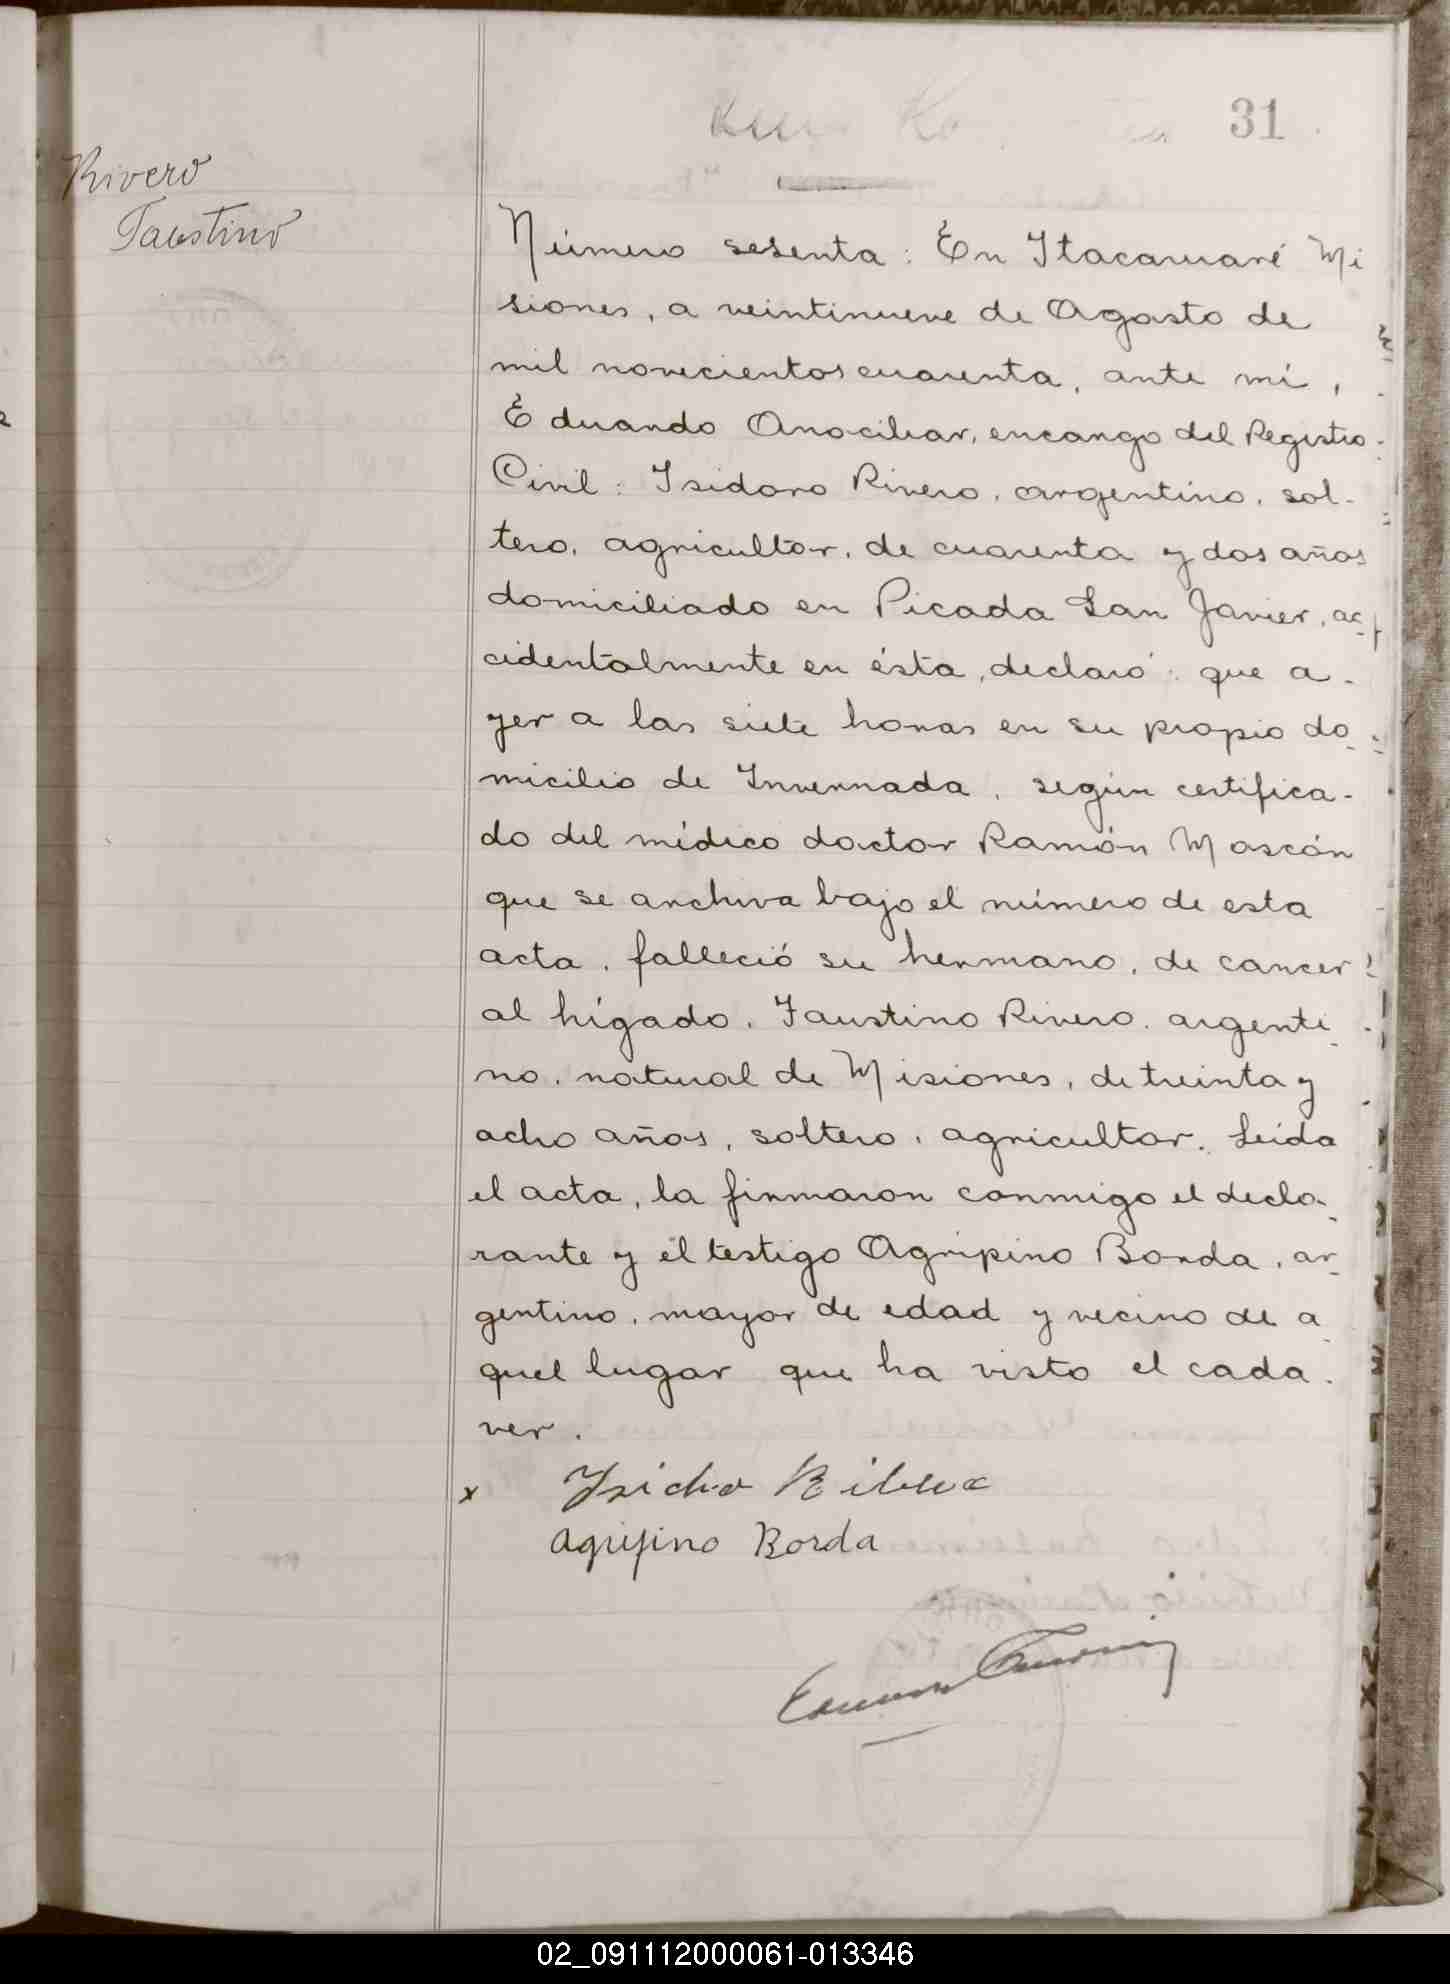 31
Rivero
Faustino
Número sesenta: En Itacaruaré Mi
siones, a veintinueve de Agosto de
mil novecientos cuarenta, ante mí,
Eduardo Anocibar, encargo del Registro
Civil: Isidoro Rivero, argentino, sol-
tero, agricultor, de cuarenta y dos años
domiciliado en Picada San Javier, ac-
cidentalmente en ésta, declaró: que a-
yer a las siete horas en su propio do-
micilio de Invernada, según certifica-
do del médico doctor Ramón Mascón
que se archiva bajo el número de esta
acta, falleció su hermano, de cancer
al hígado, Faustino Rivero, argenti-
no, natural de Misiones, de treinta y
ocho años, soltero, agricultor. Leida
el acta, la firmaron conmigo el decla-
rante y el testigo Agripino Borda, ar-
gentino, mayor de edad y vecino de a-
quel lugar que ha visto el cada-
ver.
x
Agripino Borda
02_091112000061-013346